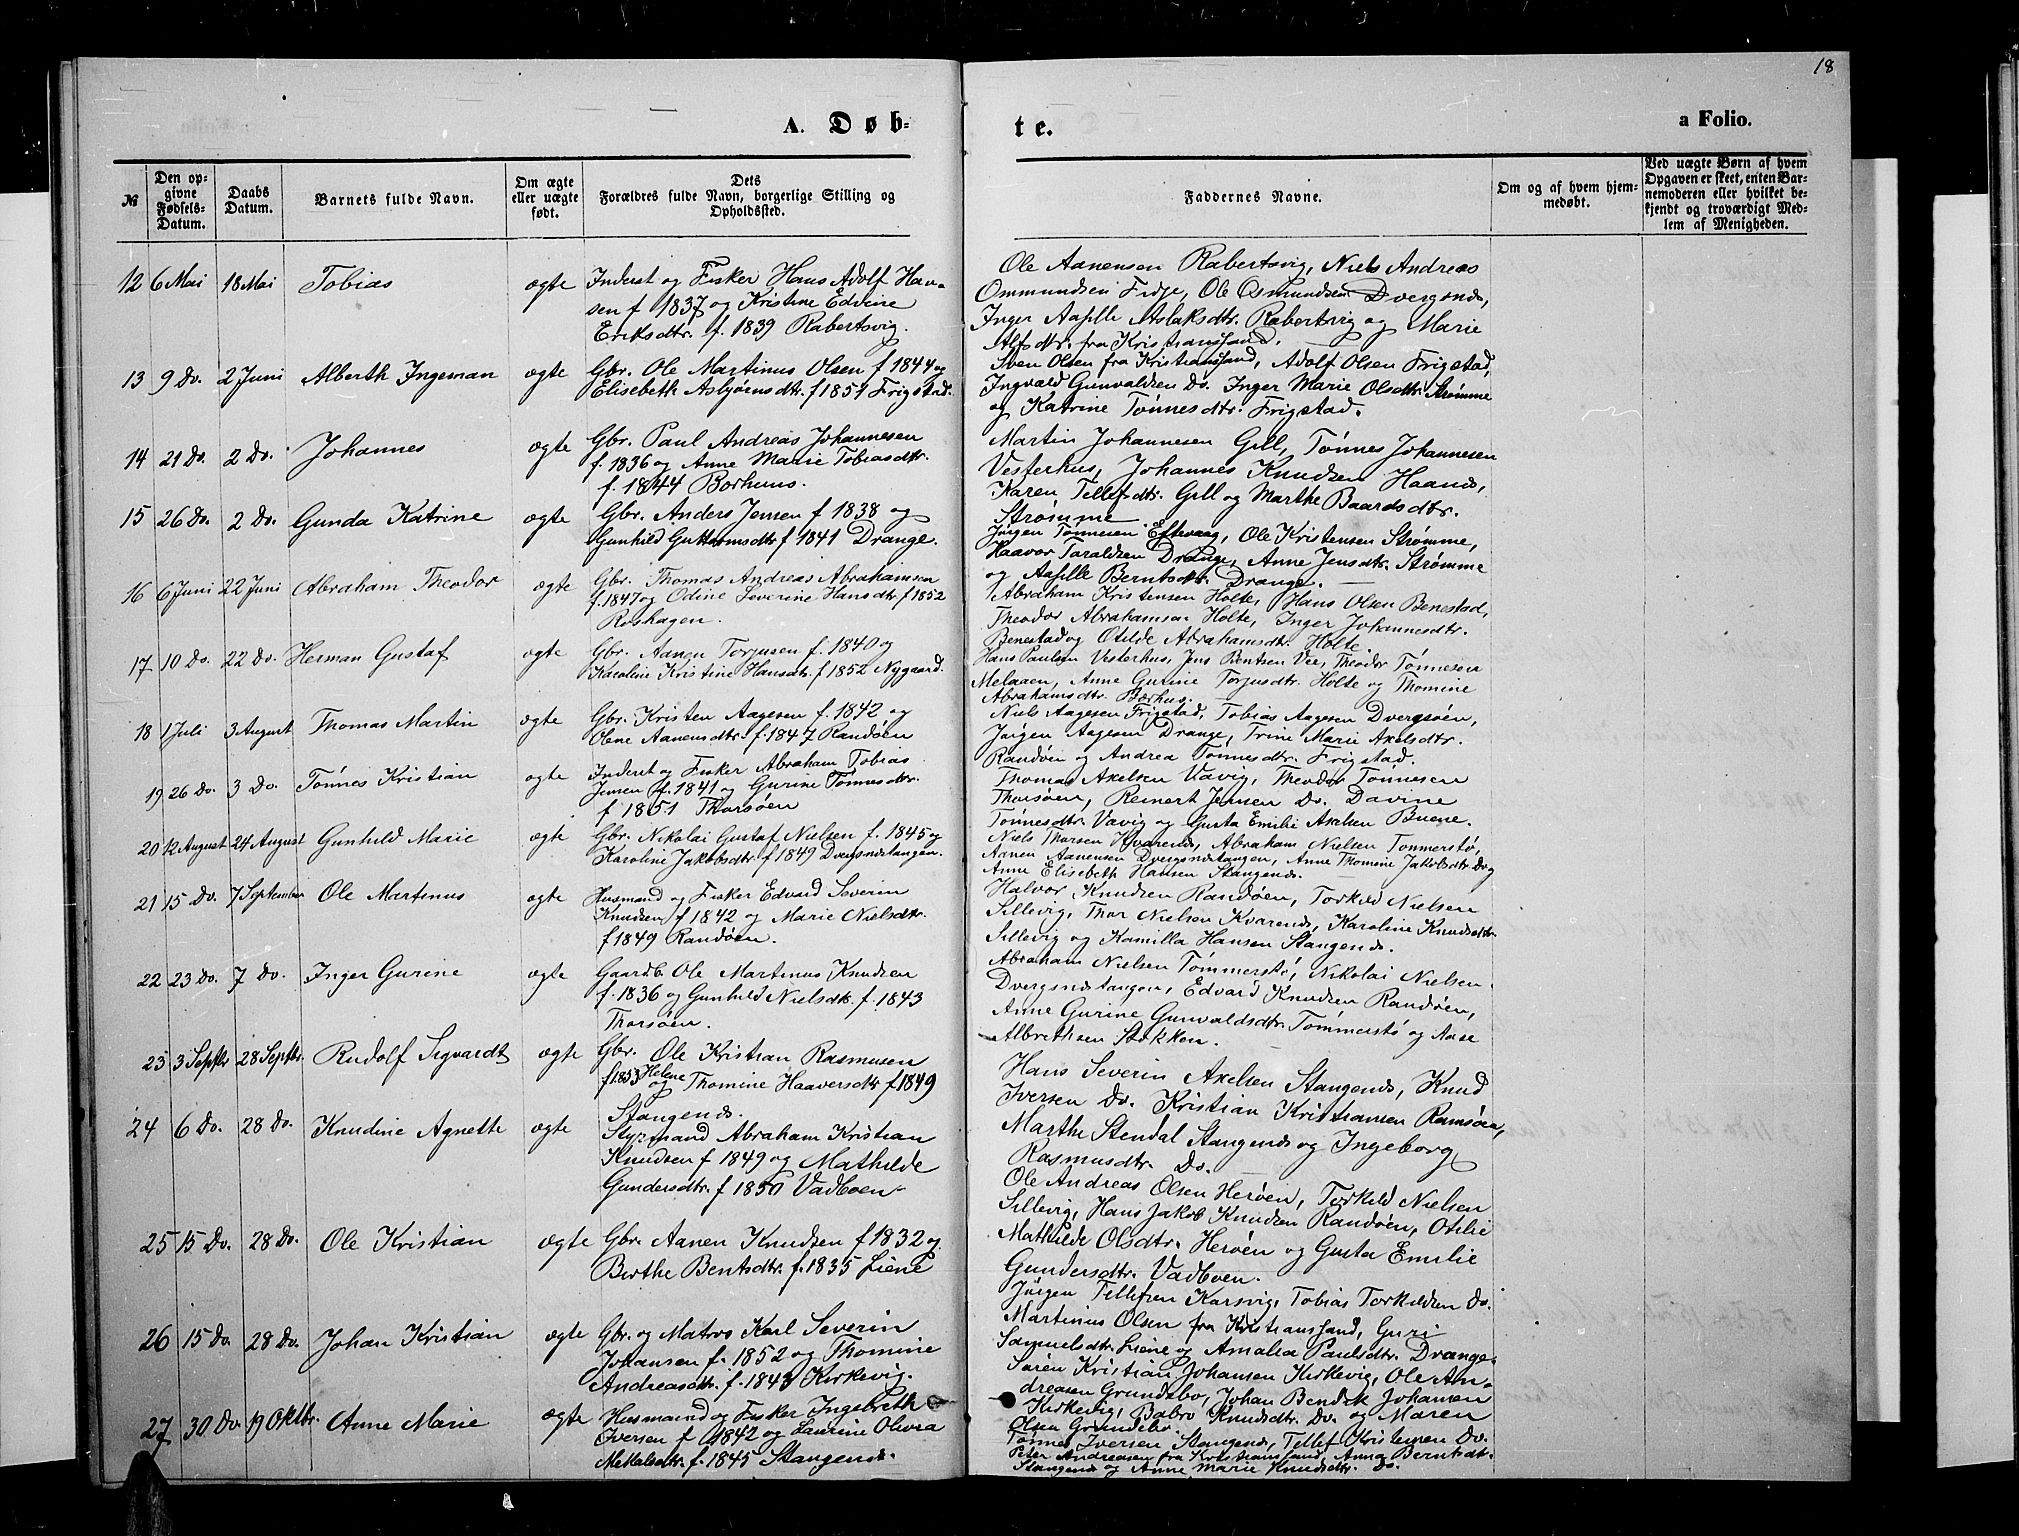 18
A. Døb-
te.
a Folio.
№
Den op-
givne
Fødsels-
Datum.
Daabs
Datum.
Barnets fulde Navn.
Om ægte
eller uægte
født.
Dets
Forældres fulde Navn, borgerlige Stilling og
Opholdssted.
Faddernes Navne.
Om og af hvem hjem-
medøbt.
Ved uægte Børn af hvem
Opgaven er skeet, enten Bar-
nemoderen eller hvilket be-
kjendt og troværdigt Med-
lem af Menigheden.
12 6 Mai 18 Mai Tobias ægte Inderst og Fisker Hans Adolf Han-
sen f 1837 og Kristine Edvine
Eriksdtr. f. 1839 Rabertsvig.
Ole Aanensen Rabertsvig, Niels Andreas
Ommundsen Fidje, Ole Osmundsen Dvergsnæs,
Inger Aasille Aslaksdtr. Rabertsvig og Marie
Alfsdtr. fra Kristianssand.
13 9 Do. 2 Juni Alberth Ingeman ægte Gbr. Ole Martinus Olsen f 1844 og
Elisebeth Asbjørnsdtr. f 1851 Frigstad.
Sven Olsen fra Kristianssand, Adolf Olsen Frigstad,
Ingvald Gunvaldsen Do. Inger Marie Olsdtr. Strømme
og Katrine Tønnesdtr. Frigstad.
14 21 Do. 2 Do. Johannes ægte Gbr. Paul Andreas Johannesen
f. 1836 og Anne Marie Tobiasdtr.
f. 1844 Borhuus.
Martin Johannesen Gill, Tønnes Johannesen
Vesterhus, Johannes Knudsen Haanæs,
Karen Tellefsdtr. Gill og Marthe Baardsdtr.
Strømme
15 26 Do. 2 Do. Gunda Katrine ægte Gbr. Anders Jensen f 1838 og
Gunhild Guttormsdtr f 1841 Drange.
Jørgen Tønnesen Eftevaag, Ole Kristensen Strømme,
Haavor Taraldsen Drange, Anne Jensdtr. Strømme
og Aasille Berntsdtr. Drange.
16 6 Juni 22 Juni Abraham Theodor ægte Gbr. Thomas Andreas Abrahamsen
f. 1847 og Odine Severine Hansdtr. f 1852
Roshagen.
Abraham Kristensen Holte, Hans Olsen Benestad,
Theodor Abrahamsen Holte, Inger Johannesdtr.
Benestad og Otilde Abrahamsdtr. Holte.
17 10 Do. 22 Do. Herman Gustaf ægte Gbr. Aanen Torjusen f. 1840 og
Karoline Kristine Hansdtr. f 1852 Nygaard.
Hans Paulsen Vesterhus, Jens Bentsen Vee, Theodor Tønnesen
Melaaen, Anne Gurine Torjusdtr. Holte og Thomine
Abrahamsdtr. Borhus.
18 1 Juli 3 August Thomas Martin ægte Gbr. Kristen Aagesen f. 1842 og
Olene Aanensdtr. f. 1847 Randøen
Niels Aagesen Frigstad, Tobias Aagesen Dvergsøen,
Jørgen Aagesen Drange, Trine Marie Axelsdtr.
Randøen og Andrea Tønnesdtr. Frigstad.
19 26 Do. 3 Do. Tønnes Kristian ægte Inderst og Fisker Abraham Tobias
Jensen f. 1841 og Gurine Tønnesdtr.
f 1851 Thorsøen
Thomas Axelsen Vavig, Theodor Tønnesen
Thorsøen, Reinert Jensen Do. Davine
Tønnesdtr. Vavig og Gusta Emilie Axelsen Buene.
20 12 August 24 August Gunhild Marie ægte Gbr. Nikolai Gustaf Nielsen f. 1845 og
Karoline Jakobsdtr. f 1849 Dvergsnæstangen.
Niels Thorsen Kvarenæs, Abraham Nielsen Tømmerstø,
Aanen Aanensen Dvergsnæstangen, Anne Thomine Jakobsdtr. Do. og
Anne Elisebeth Hansen Stangenæs.
21 15 Do. 7 September Ole Martinus ægte Husmand og Fisker Edvard Severin
Knudsen f 1842 og Marie Nielsdtr.
f 1849 Randøen.
Halvor Knudsen Randøen, Torkild Nielsen
Sillevig, Thor Nielsen Kvarenæs, Karoline Knudsdtr.
Sillevig og Kamilla Hansen Stangenæs.
22 23 Do. 7 Do. Inger Gurine ægte Gaardb. Ole Martinus Knudsen
f. 1836 og Gunhild Nielsdtr. f. 1843
Thorsøen.
Abraham Nielsen Tømmerstø, Nikolai Nielsen
Dvergsnæstangen, Edvard Knudsen Randøen,
Anne Gurine Gunvaldsdtr. Tømmerstø og Aase
Albrethsen Stokken.
23 3 Septbr 28 Septbr. Rudolf Sigvardt ægte Gbr. Ole Kristian Rasmusen
f 1853 og Helene Thomine Haaversdtr f 1849
Stangenæs.
Hans Severin Axelsen Stangenæs, Knud
Iversen Do. Kristian Kristiansen Ramsøen,
Marthe Stendal Stangenæs og Ingeborg
Rasmusdtr. Do.
24 6 Do. 28 Do. Knudine Agnethe ægte Styrmand Abraham Kristian
Knudsen f 1849 og Mathilde
Gundersdtr. f 1850 Vadboen
Ole Andreas Olsen Herøen, Torkild Nielsen
Sillevig, Hans Jakob Knudsen Randøen, Otilie
Mathilde Olsdtr. Herøen og Gusta Emilie
Gundersdtr. Vadboen.
25 15 Do. 28 Do. Ole Kristian ægte Gbr. Aanen Knudsen f 1832 og
Birthe Bentsdtr. f. 1835 Liene
Jørgen Tellefsen Korsvig, Tobias Torkildsen Do.
Martinius Olsen fra Kristianssand, Guri
Samuelsdtr. Liene og Amalia Paulsdtr. Drange.
26 15 Do. 28 Do. Johan Kristian ægte Gbr. og Matros Karl Severin
Johansen f. 1852 og Thomine
Andreasdtr. f. 1843 Kirkevig.
Søren Kristian Johansen Kirkevig, Ole An-
dreasen Grundebø, Johan Bendik Johansen
Kirkevig, Babro Knudsdtr. Do. og Maren
Olsen Grundebø.
27 30 Do. 19 Oktbr. Anne Marie ægte Husmand og Fisker Ingebreth
Iversen f 1842 og Laurine Olivia
Mekkelsdtr. f. 1845 Stangenæs.
Tønnes Iversen Stangenæs, Tellef Kristensen Do.
Peter Andreasen fra Kristianssand, Anna Berntsdtr.
Stangenæs og Anne Marie Knudsdtr. Do.